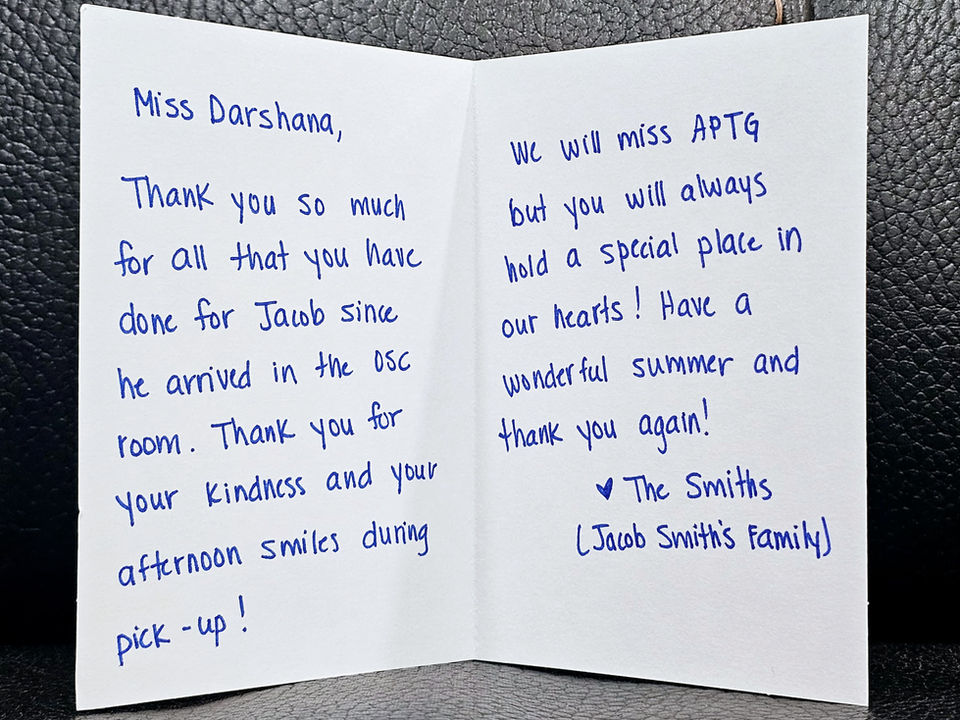 Miss Darshana,
Thank you so much
for all that you have
done for Jacob since
he arrived in the OSC
room. Thank you for
your kindness and your
afternoon smiles during
pick-up!
We will miss APTG
but you will always
hold a special place in
our hearts! Have a
wonderful summer and
thank you again!
♥ The Smiths
(Jacob Smith's Family)